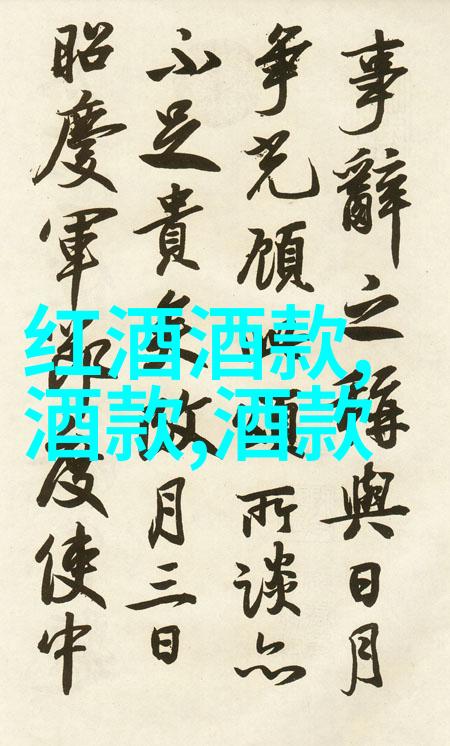 事辭之稱與日月
爭光顧所談亦
不足貴矣月三日
昭慶軍節度使中
红酒酒款,
酒款,酒款